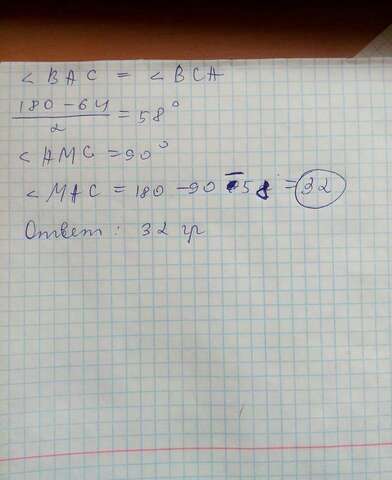 < BAC = < BCA
180 - 64 / 2 = 58°
< AMC = 90°
< MAC = 180 - 90 - 58 = 32
Ответ : 32 гр